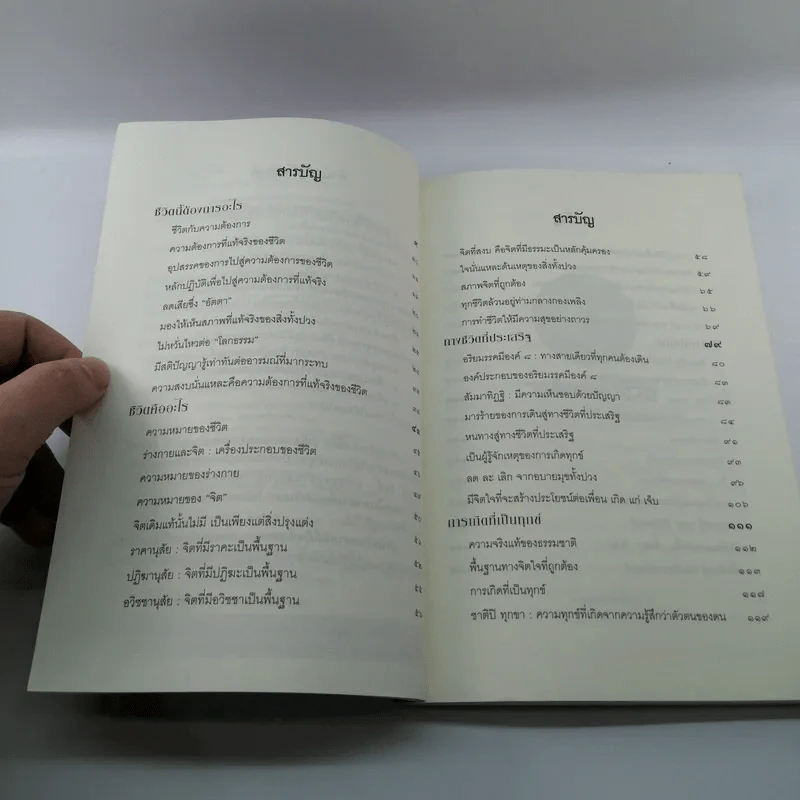 สารบัญ
ชีวิตนี้ต้องการอะไร
ชีวิตกับความต้องการ
ความต้องการที่แท้จริงของชีวิต
อุปสรรคของการไปสู่ความต้องการของชีวิต
หลักปฏิบัติเพื่อไปสู่ความต้องการที่แท้จริง
ลดเสียซึ่ง "อัตตา"
มองให้เห็นสภาพที่แท้จริงของสิ่งทั้งปวง
ไม่หวั่นไหวต่อ "โลกธรรม"
มีสติปัญญารู้เท่าทันต่ออารมณ์ที่มากระทบ
ความสงบนั่นแหละคือความต้องการที่แท้จริงของชีวิต
ชีวิตคืออะไร
ความหมายของชีวิต
ร่างกายและจิต : เครื่องประกอบของชีวิต
ความหมายของร่างกาย
ความหมายของ "จิต"
จิตเดิมแท้นั้นไม่มี เป็นเพียงแต่สิ่งปรุงแต่ง
ราคานุสัย : จิตที่มีราคะเป็นพื้นฐาน
ปฏิฆานุสัย : จิตที่มีปฏิฆะเป็นพื้นฐาน
อวิชชานุสัย : จิตที่มีอวิชชาเป็นพื้นฐาน
สารบัญ
จิตที่สงบ คือจิตที่มีธรรมะเป็นหลักคุ้มครอง ๕๘
ใจนั่นแหละต้นเหตุของสิ่งทั้งปวง ๕๙
สภาพจิตที่ถูกต้อง ๖๕
ทุกชีวิตล้วนอยู่ท่ามกลางกองเพลิง ๖๖
การทำชีวิตให้มีความสุขอย่างถาวร ๖๙
ทางชีวิตที่ประเสริฐ ๗๙
อริยมรรคมีองค์ ๘ : ทางสายเดียวที่ทุกคนต้องเดิน ๘๐
องค์ประกอบของอริยมรรคมีองค์ ๘ ๘๓
สัมมาทิฏฐิ : มีความเห็นชอบด้วยปัญญา ๘๓
มารร้ายของการเดินสู่ทางชีวิตที่ประเสริฐ ๘๔
หนทางสู่ทางชีวิตที่ประเสริฐ ๙๑
เป็นผู้รู้จักเหตุของการเกิดทุกข์ ๙๓
ลด ละ เลิก จากอบายมุขทั้งปวง ๙๖
มีจิตใจที่จะสร้างประโยชน์ต่อเพื่อน เกิด แก่ เจ็บ ๑๐๖
การเกิดที่เป็นทุกข์ ๑๑๑
ความจริงแท้ของธรรมชาติ ๑๑๒
พื้นฐานทางจิตใจที่ถูกต้อง ๑๑๓
การเกิดที่เป็นทุกข์ ๑๑๗
ชาติปิ ทุกขา : ความทุกข์ที่เกิดจากความรู้สึกว่าตัวตนของตน ๑๑๙